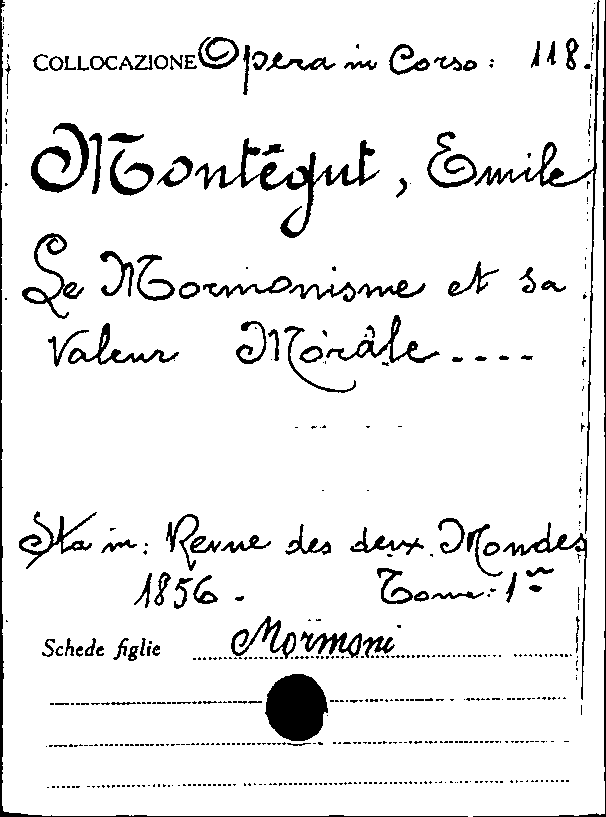 COLLOCAZIONE Opera in Corso: 118.
Montégut, Emile
Le Mormonisme et sa
Valeur Morale ....
Sta in: Revue des deux Mondes
1856. Tome: 1er
Schede figlie Mormoni